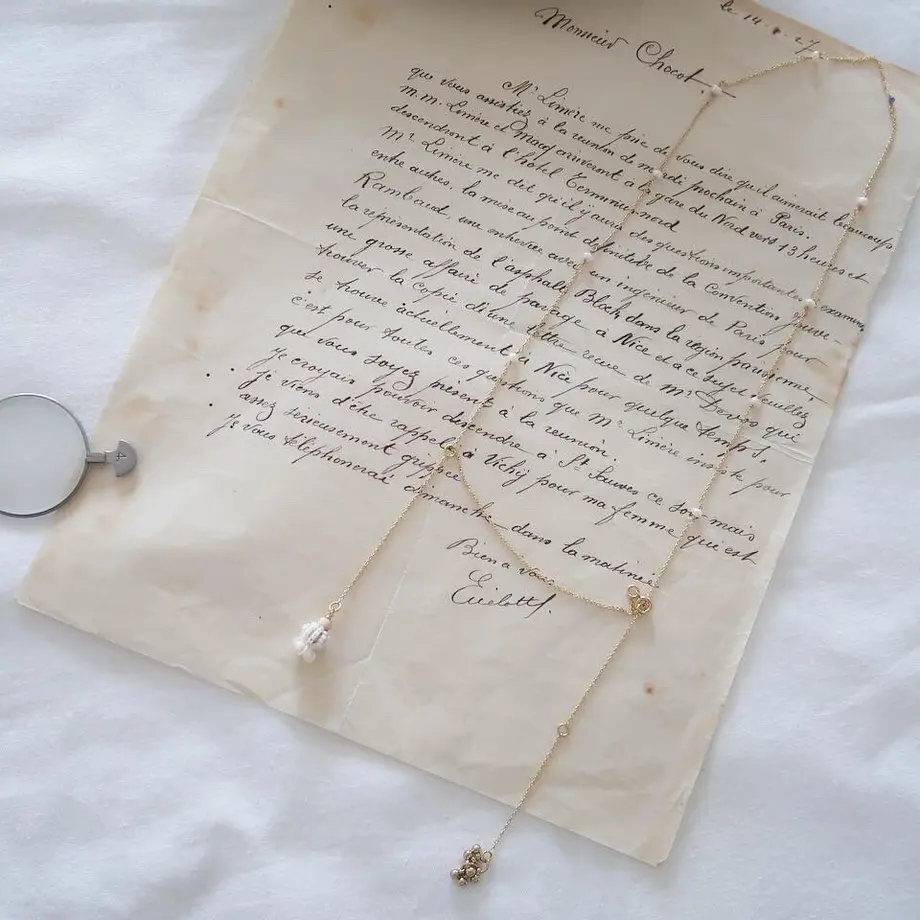 le 14 - - 27
Monsieur Chocot
Mr Limère me prie de vous dire qu'il aimerait beaucoup
que vous assistiez à la réunion de mardi prochain à Paris.
M.M. Limère et Macq arriveront à la gare du Nord vers 13 heures et
descendront à l'hôtel Terminus nord
Mr Limère me dit qu'il y aura des questions importantes à examiner
entre autres. la mise au point définitive de la Convention
Rambaud, une entrevue avec un ingénieur de Paris pour
la représentation de l'asphalt Block dans la région parisienne,
une grosse affaire de pavage à Nice et à ce sujet veuillez
trouver la copie d'une lettre reçue de Mr qui
se trouve actuellement à Nice pour quelque temps.
c'est pour toutes ces questions que Mr Limère insiste pour
que vous soyez présent à la réunion.
Je croyais pouvoir descendre à St Sauves ce soir mais
je viens d'être rappelé à Vichy pour ma femme qui est
assez sérieusement grippée
Je vous téléphonerai dimanche dans la matinée
Bien à vous